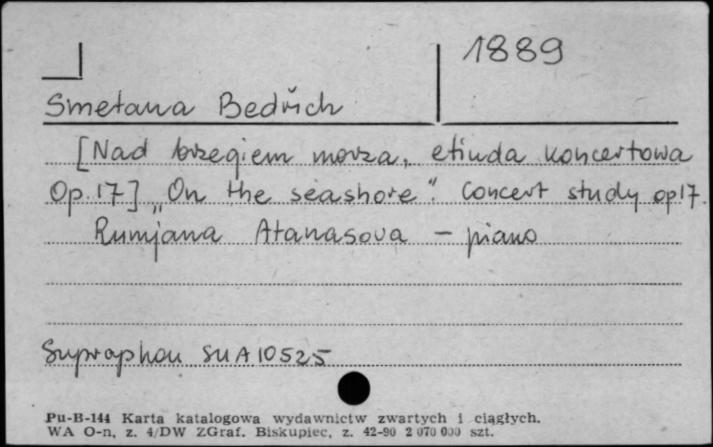 1889
Smetana Bedřich
[Nad brzegiem morza, etiuda koncertowa
Op. 17] „On the seashore”. Concert study op 17.
Rumjana Atanasova – piano
Supraphon SUA 10525
Pu-B-144 Karta katalogowa wydawnictw zwartych i ciągłych.
WA O-n, z. 4/DW ZGraf. Biskupiec, z. 42-90 2 070 000 szt.